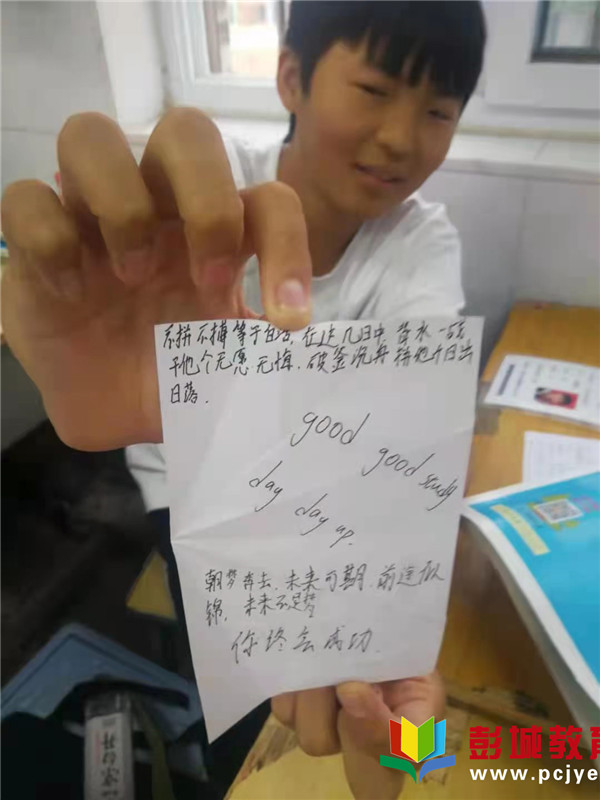 不拼不搏等于白活,在这几日中背水一战
干他个无怨无悔.破釜沉舟拼他个日出
日落.
good
good study
day
day up.
朝梦奔去,未来可期.前途似
锦,未来不是梦
你终会成功.
彭城教育
www.pcjye